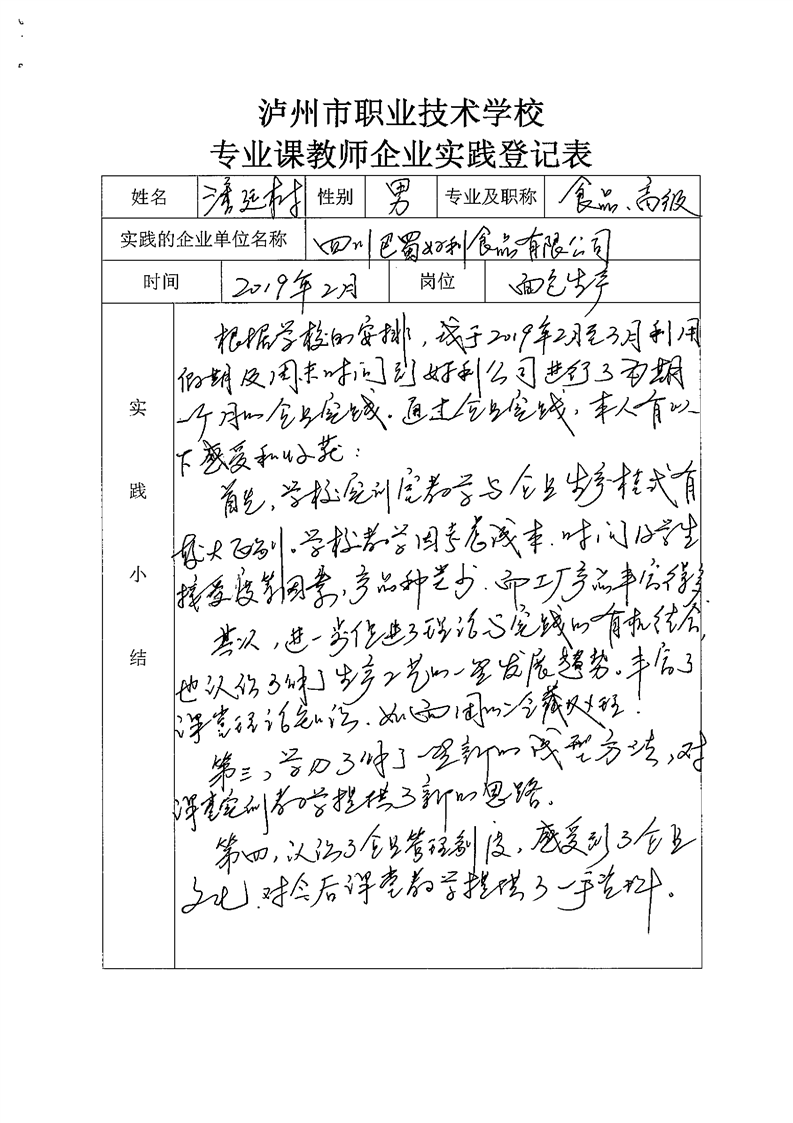 泸州市职业技术学校
专业课教师企业实践登记表
姓名 性别 男 专业及职称 食品、高级
实践的企业单位名称 四川巴蜀好利食品有限公司
时间 2019年2月 岗位 面包生产
实践小结
根据学校的安排，我于2019年2月至3月利用
假期及周末时间到好利公司进行了为期
一个月的企业实践。通过企业实践，本人有以
下感受和收获：
首先，学校实训室教学与企业生产模式有
较大区别。学校教学因考虑成本、时间及学生
接受度等因素，产品种类少，而工厂产品丰富得多
其次，进一步促进了理论与实践的有机结合，
也认识了解了生产工艺的一些发展趋势。丰富了
课堂理论知识，如面团的冷藏处理。
第三，学习了解了一些新的成型方法，对
课堂实训教学提供了新的思路。
第四，认识了企业管理制度，感受到了企业
文化，对今后课堂教学提供了一手资料。